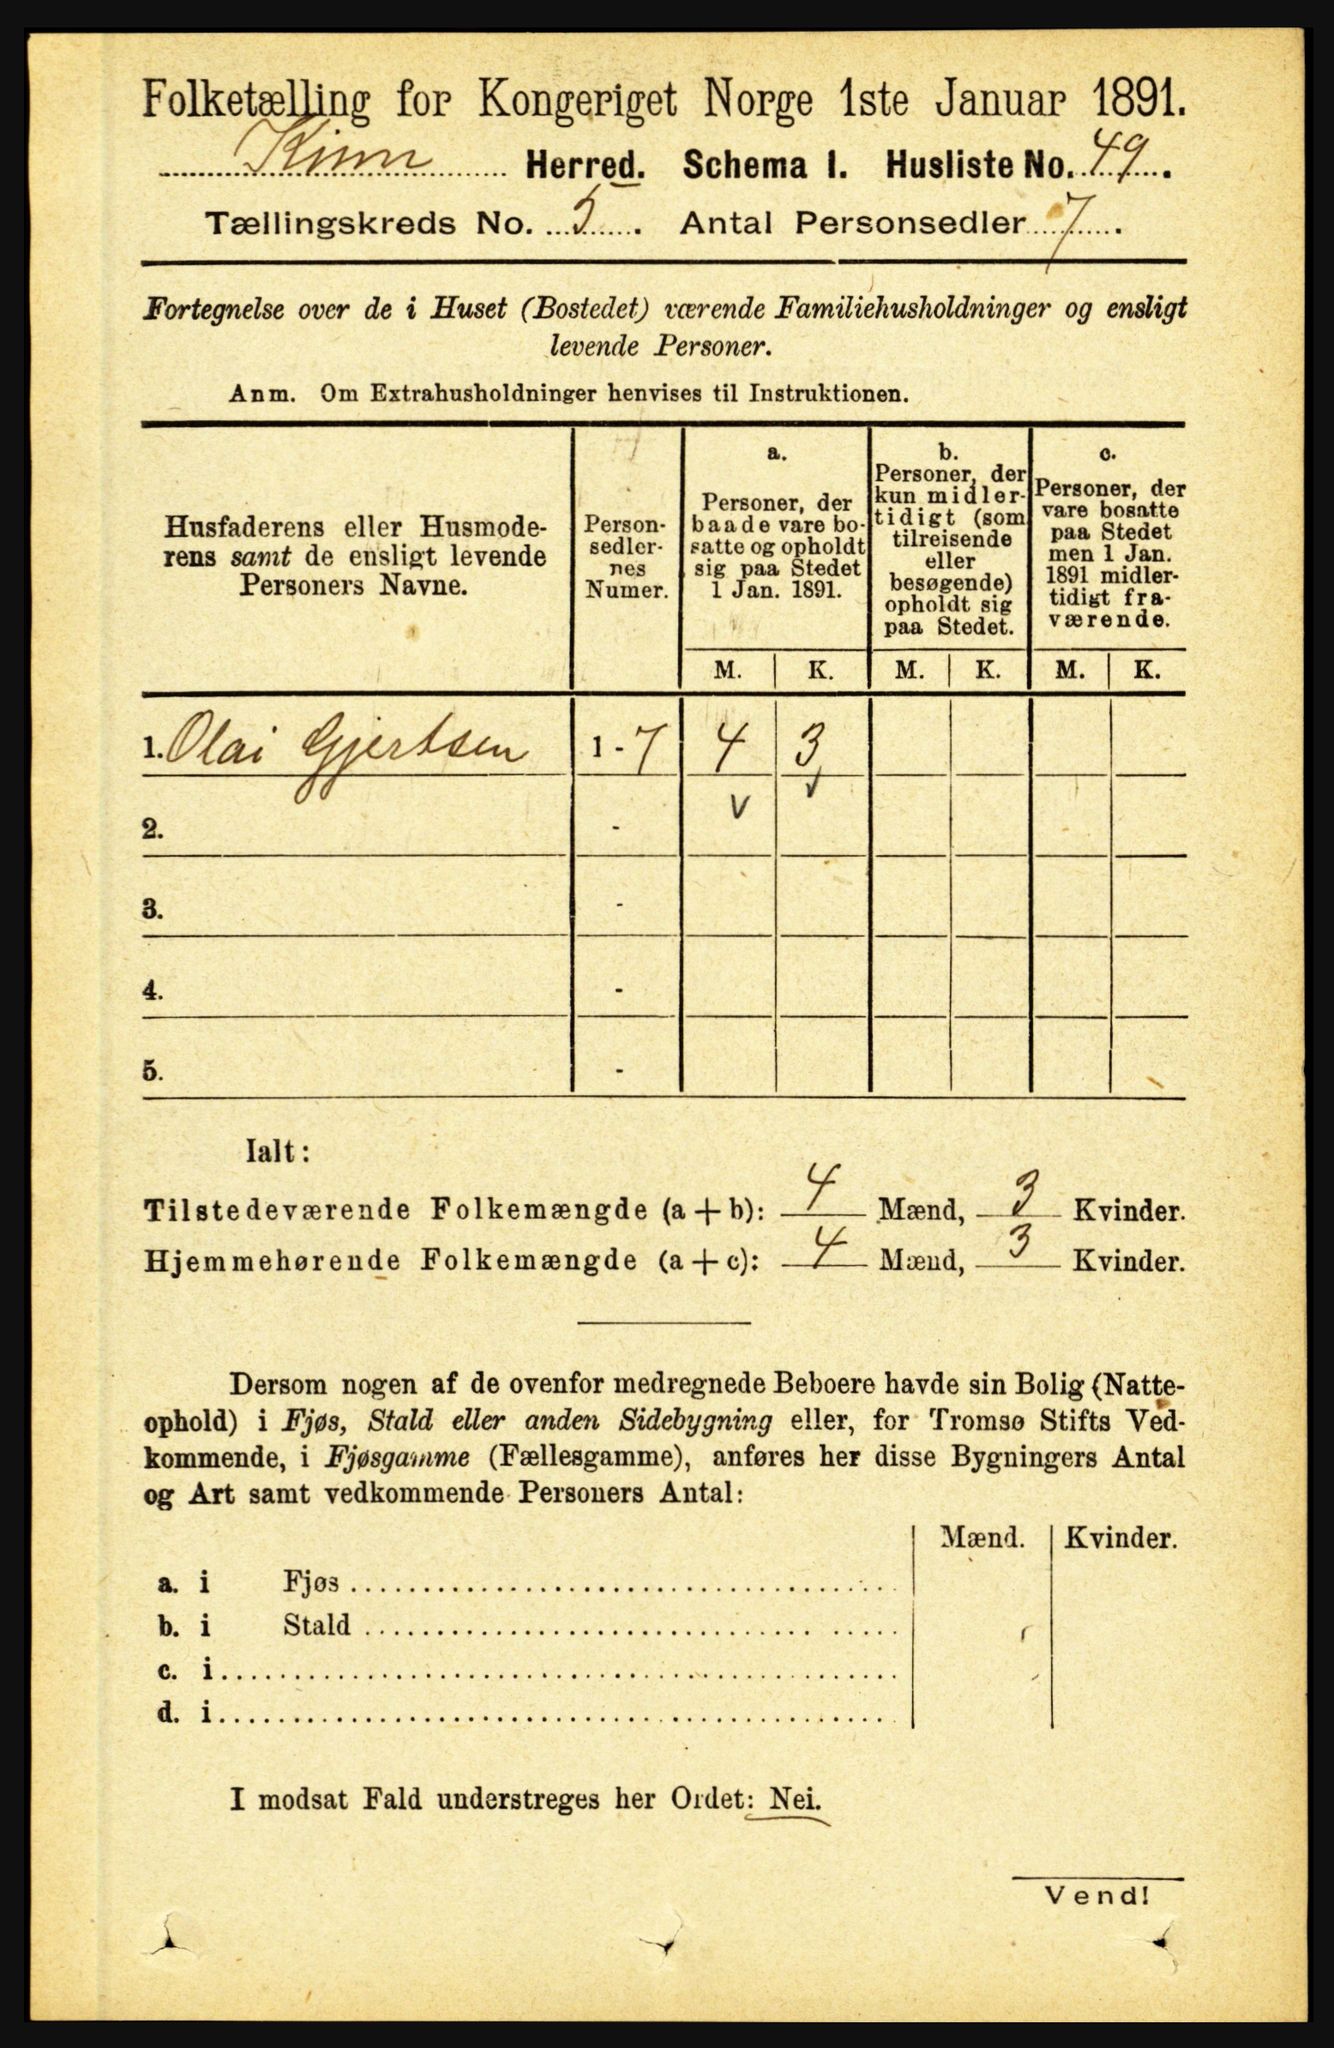 Folketælling for Kongeriget Norge 1ste Januar 1891.
Kinn Herred. Schema I. Husliste No. 49.
Tællingskreds No. 5. Antal Personsedler 7.
Fortegnelse over de i Huset (Bostedet) værende Familiehusholdninger og ensligt
levende Personer.
Anm. Om Extrahusholdninger henvises til Instruktionen.
Husfaderens eller Husmode-
rens samt de ensligt levende
Personers Navne.
Person-
sedler-
nes
Numer.
a.
Personer, der
baade vare bo-
satte og opholdt
sig paa Stedet
1 Jan. 1891.
b.
Personer, der
kun midler-
tidigt (som
tilreisende
eller
besøgende)
opholdt sig
paa Stedet.
c.
Personer, der
vare bosatte
paa Stedet
men 1 Jan.
1891 midler-
tidigt fra-
værende.
M. K. M. K. M. K.
1. Olai Gjertsen 1 - 7 4 3
2. -
3. -
4. -
5. -
Ialt:
Tilstedeværende Folkemængde (a + b): 4 Mænd, 3 Kvinder.
Hjemmehørende Folkemængde (a + c): 4 Mænd, 3 Kvinder.
Dersom nogen af de ovenfor medregnede Beboere havde sin Bolig (Natte-
ophold) i Fjøs, Stald eller anden Sidebygning eller, for Tromsø Stifts Ved-
kommende, i Fjøsgamme (Fællesgamme), anføres her disse Bygningers Antal
og Art samt vedkommende Personers Antal:
Mænd. Kvinder.
a. i Fjøs
b. i Stald
c. i
d. i
I modsat Fald understreges her Ordet: Nei.
Vend!